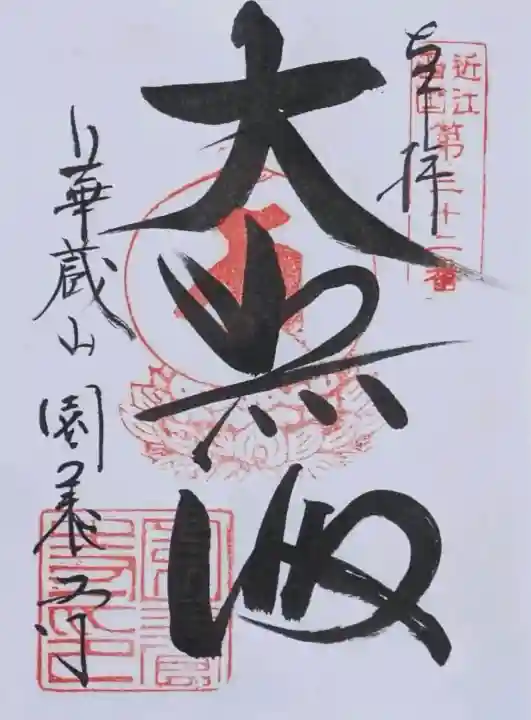 奉拝
近江
西国
第三十二番
大悲殿
華蔵山 園養寺